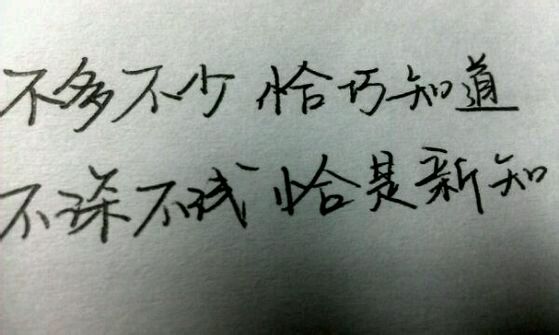 不多不少 恰巧知道
不深不浅 恰是新知